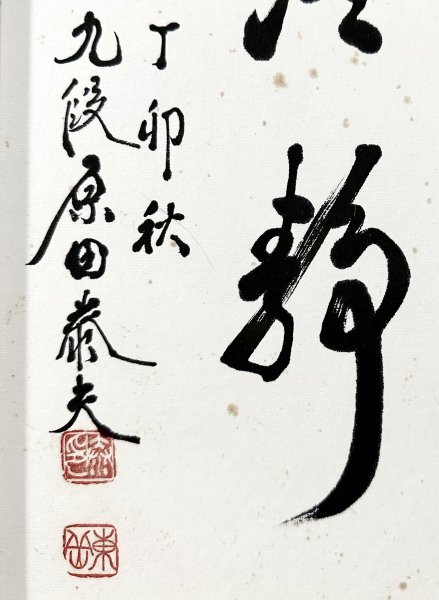 静
丁卯秋
九段原田泰夫
東